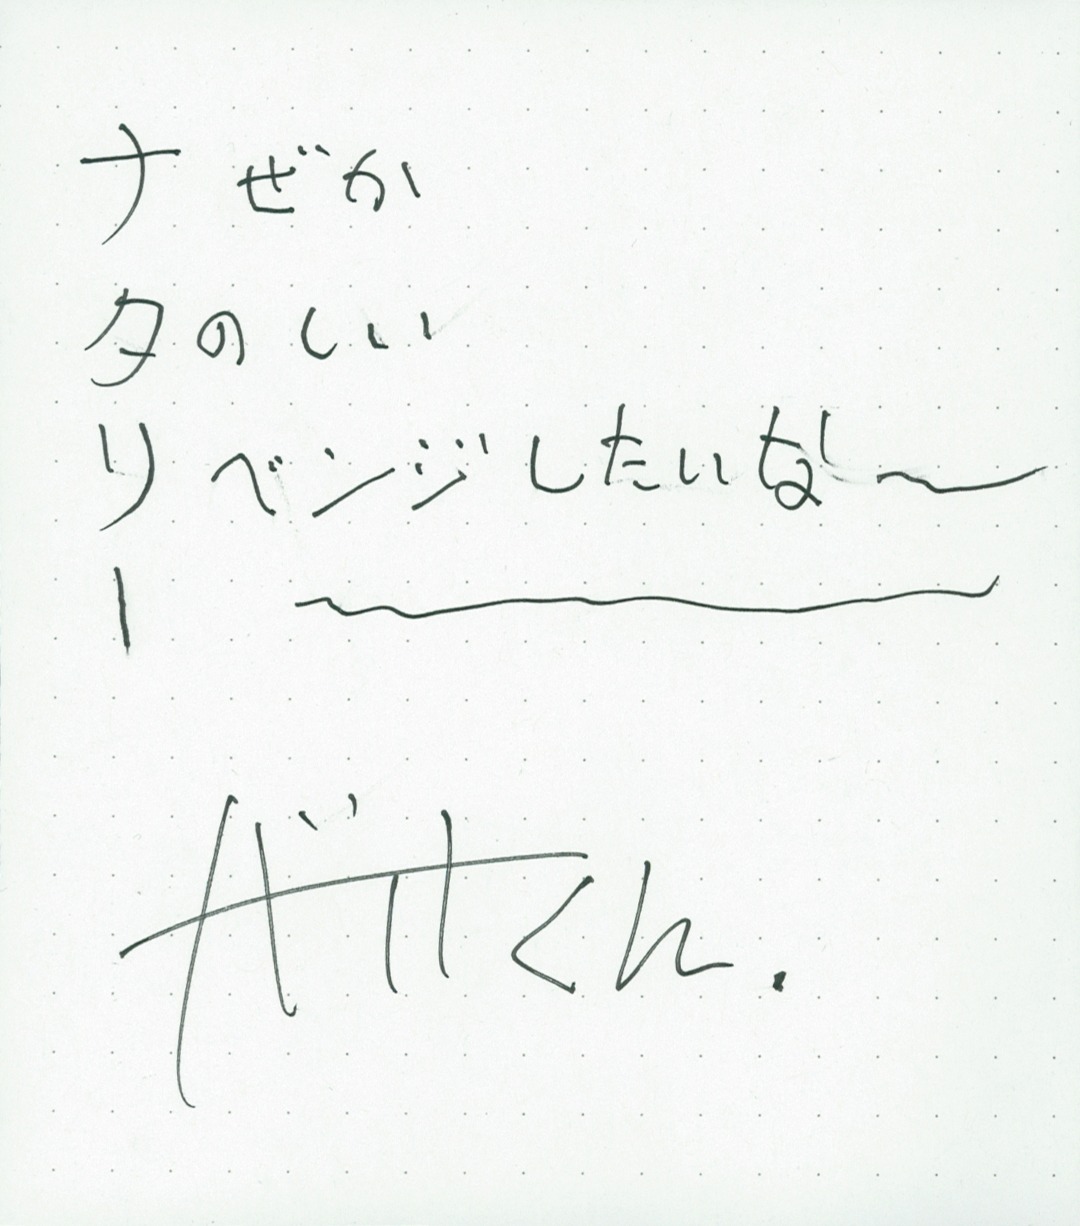 ナぜか
タのしい
リベンジしたいな〜
ー 〜
くん.